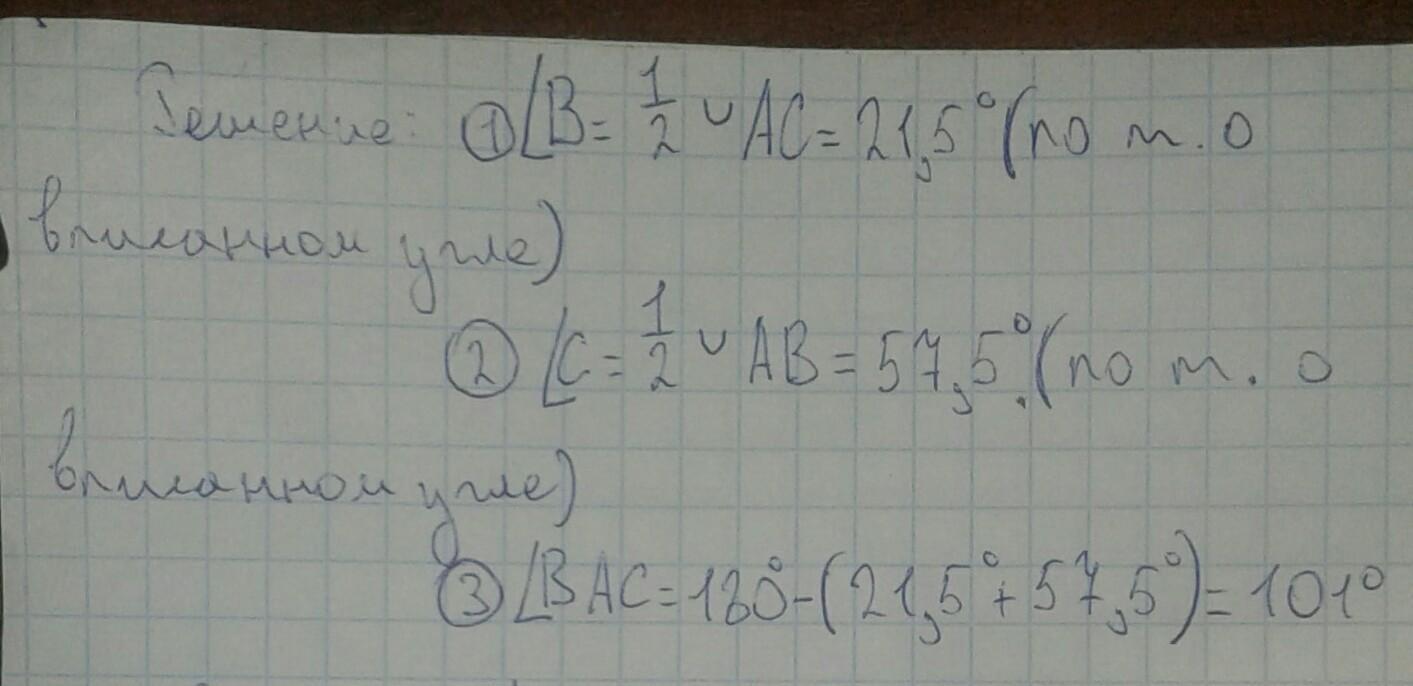 Решение: ① ∠B = 1/2 ◡ AC = 21,5° (по т. о
вписанном угле)
② ∠C = 1/2 ◡ AB = 57,5°. (по т. о
вписанном угле)
③ ∠BAC = 180° - (21,5° + 57,5°) = 101°